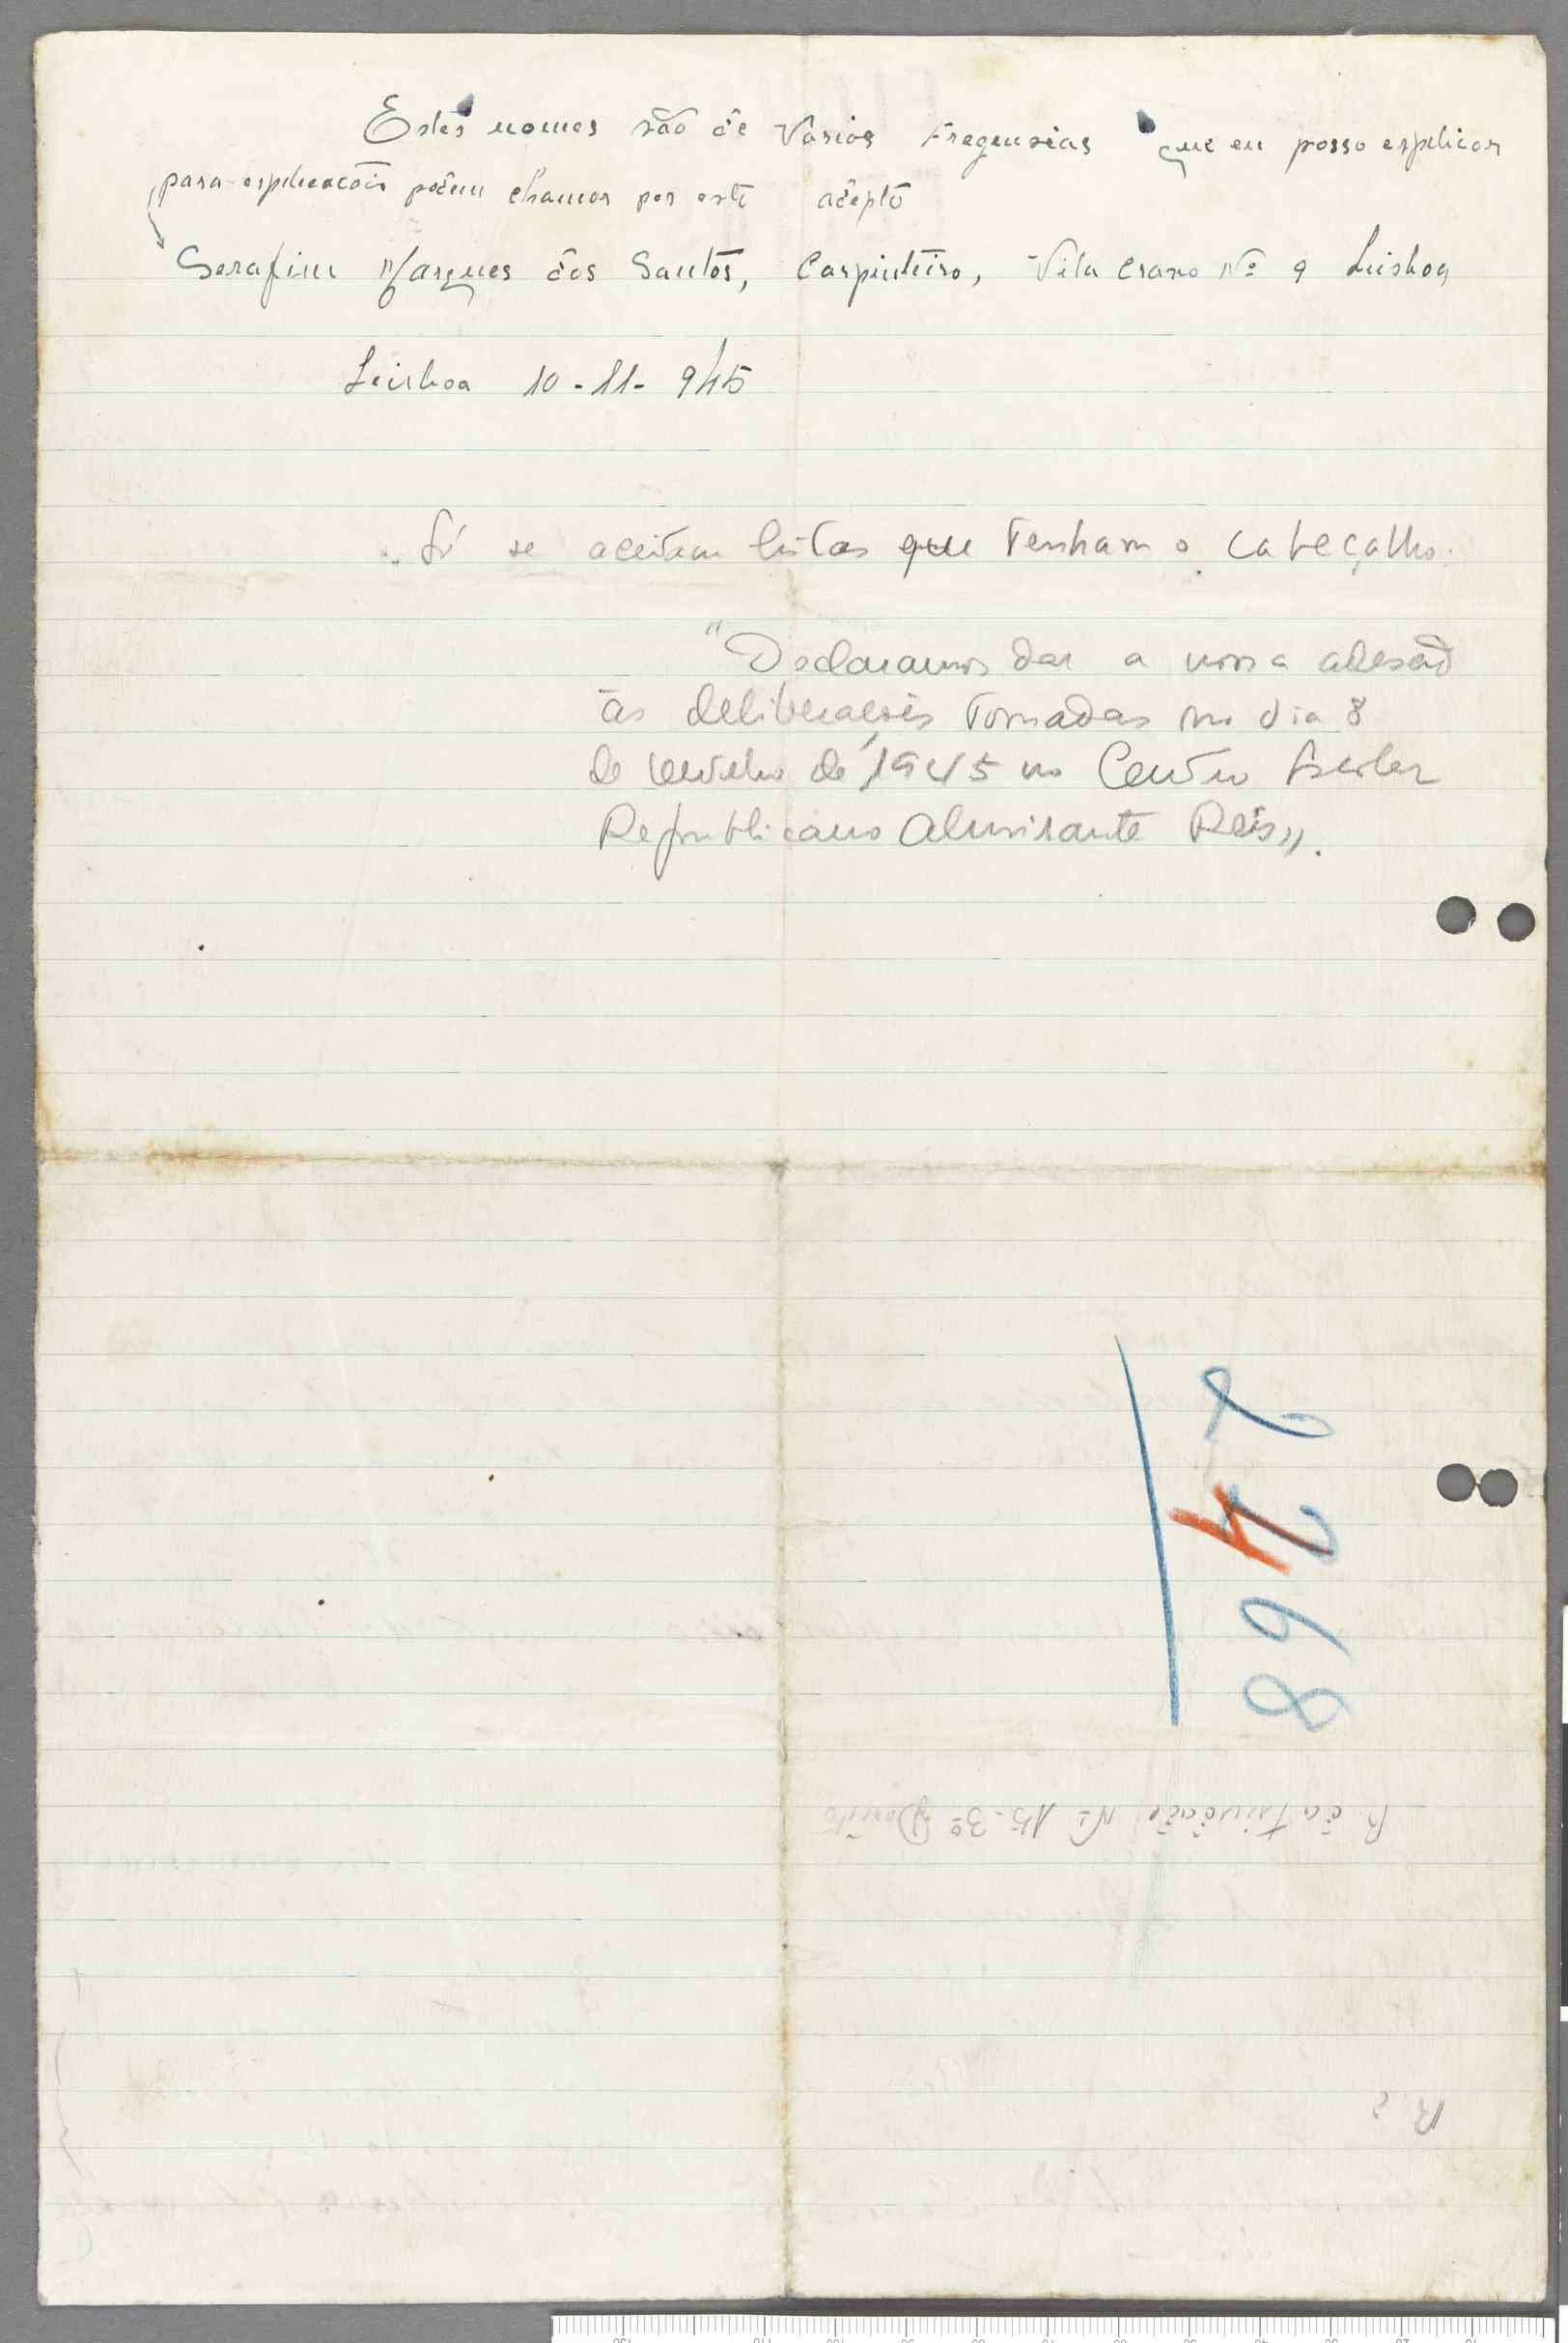 Estes nomes são de Varios Freguesias que eu posso esplicar
para esplicacois podem chamar por este adepto
Serafim Marques dos Santos, Carpinteiro, Vila Craro Nº 9 Lisboa
Lisboa 10-11-945
Só se aceitam listas que tenham o cabeçalho.
"Declaramos dar a nossa adesão
ás deliberações tomadas no dia 8
de outubro de 1945 no Centro Escolar
Republicano Almirante Reis".
2468
R. da Trindade Nº 15-3º Dereito
R. d